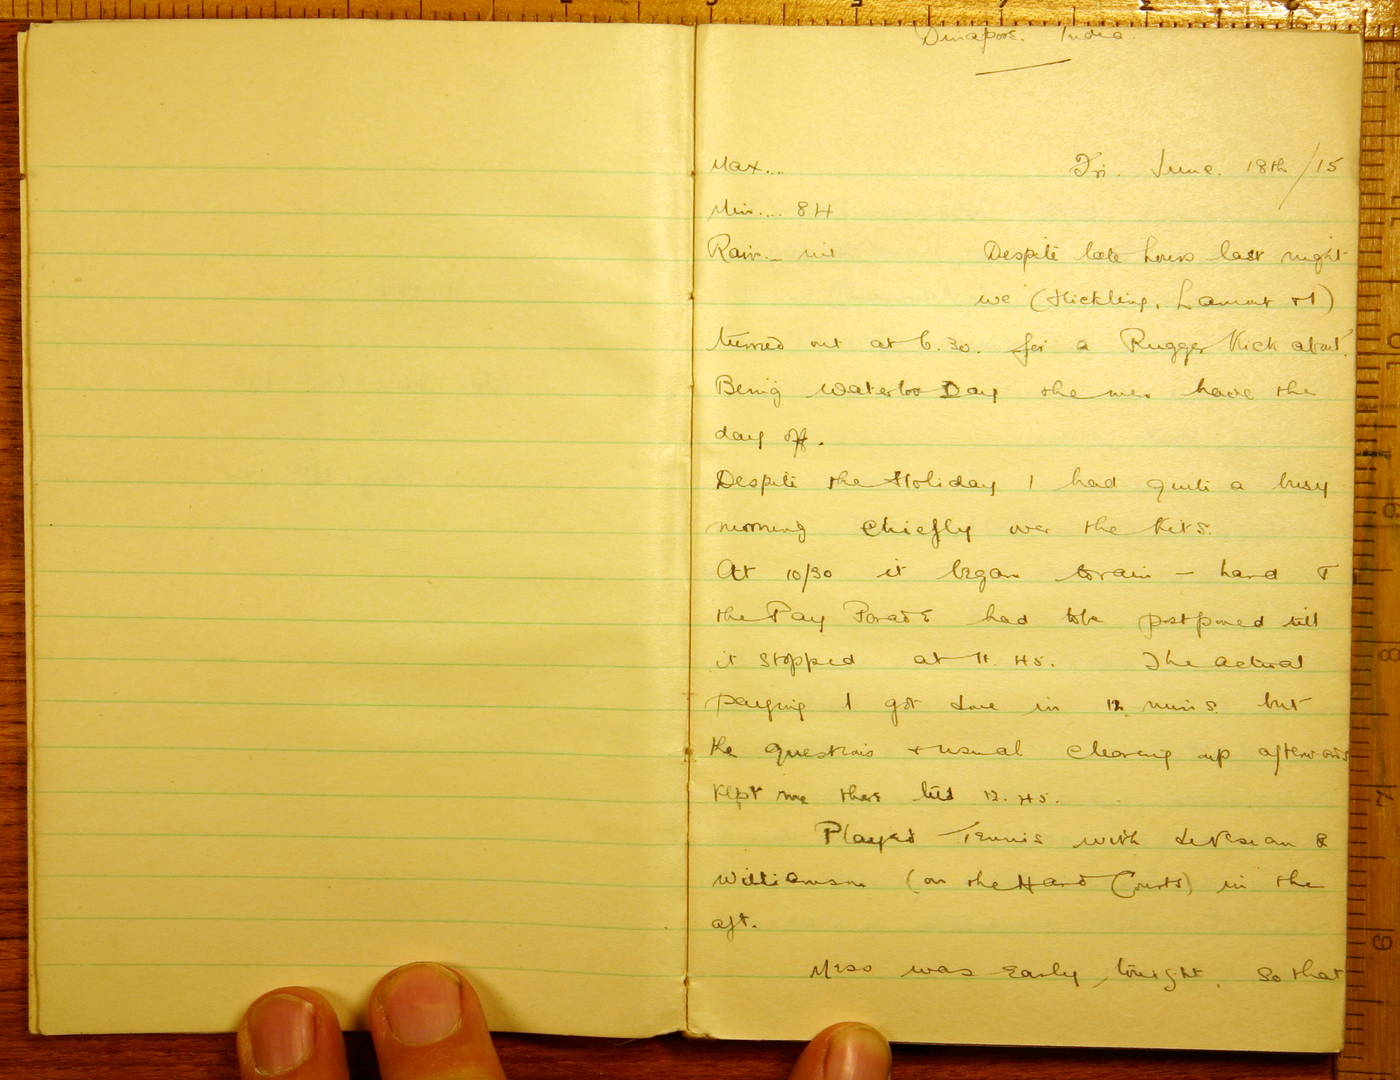 Dinapore. India.
Max... Fri. June. 18th/15
Min.... 84
Rain._ nil Despite late hours last night
we (Hickling, Lamont & I)
turned out at 6.30. for a Rugger Kick about.
Being Waterloo Day the men have the
day off.
Despite the Holiday I had quite a busy
morning chiefly over the Kits.
At 10/30 it began to rain – hard &
the Pay Parade had to be postponed till
it stopped at 11. Hs. The actual
paying I got done in 12 mins. but
the questions & usual clearing up afterwards
Kept me there till 12. Hs.
Played Tennis with &
Williamson (on the Hard Courts) in the
aft.
Mess was early tonight, so that